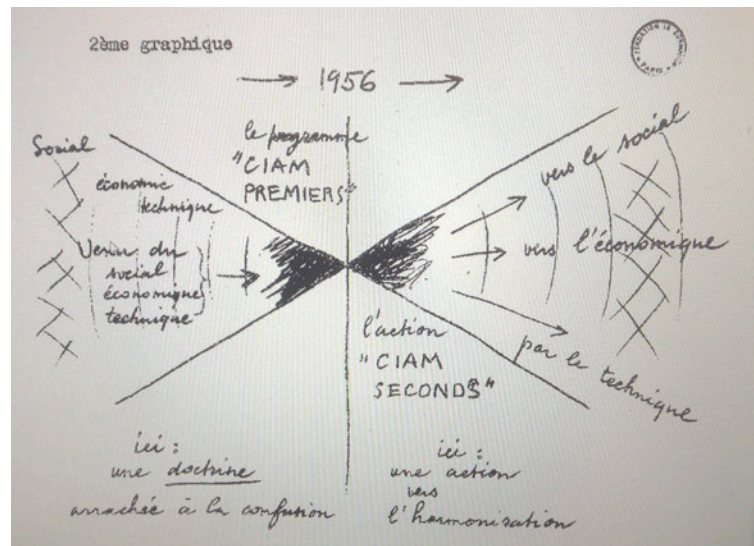 2ème graphique
FONDATION LE CORBUSIER
PARIS
1956
le programme
"CIAM
PREMIERS"
Social
économie
technique
Venu du
social
économique
technique
vers le social
vers l'économique
par le technique
l'action
"CIAM
SECONDS"
ici :
une doctrine
arrachée à la confusion
ici :
une action
vers
l'harmonisation